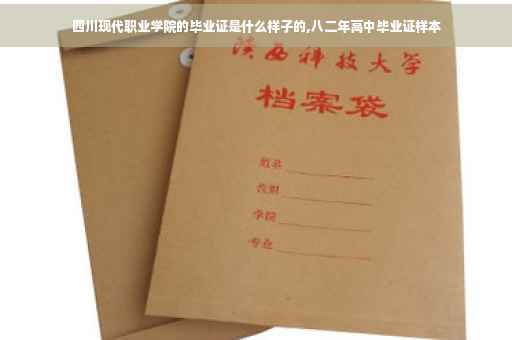 四川现代职业学院的毕业证是什么样子的,八二年高中毕业证样本
陕西科技大学
档案袋
姓名
学院
专业